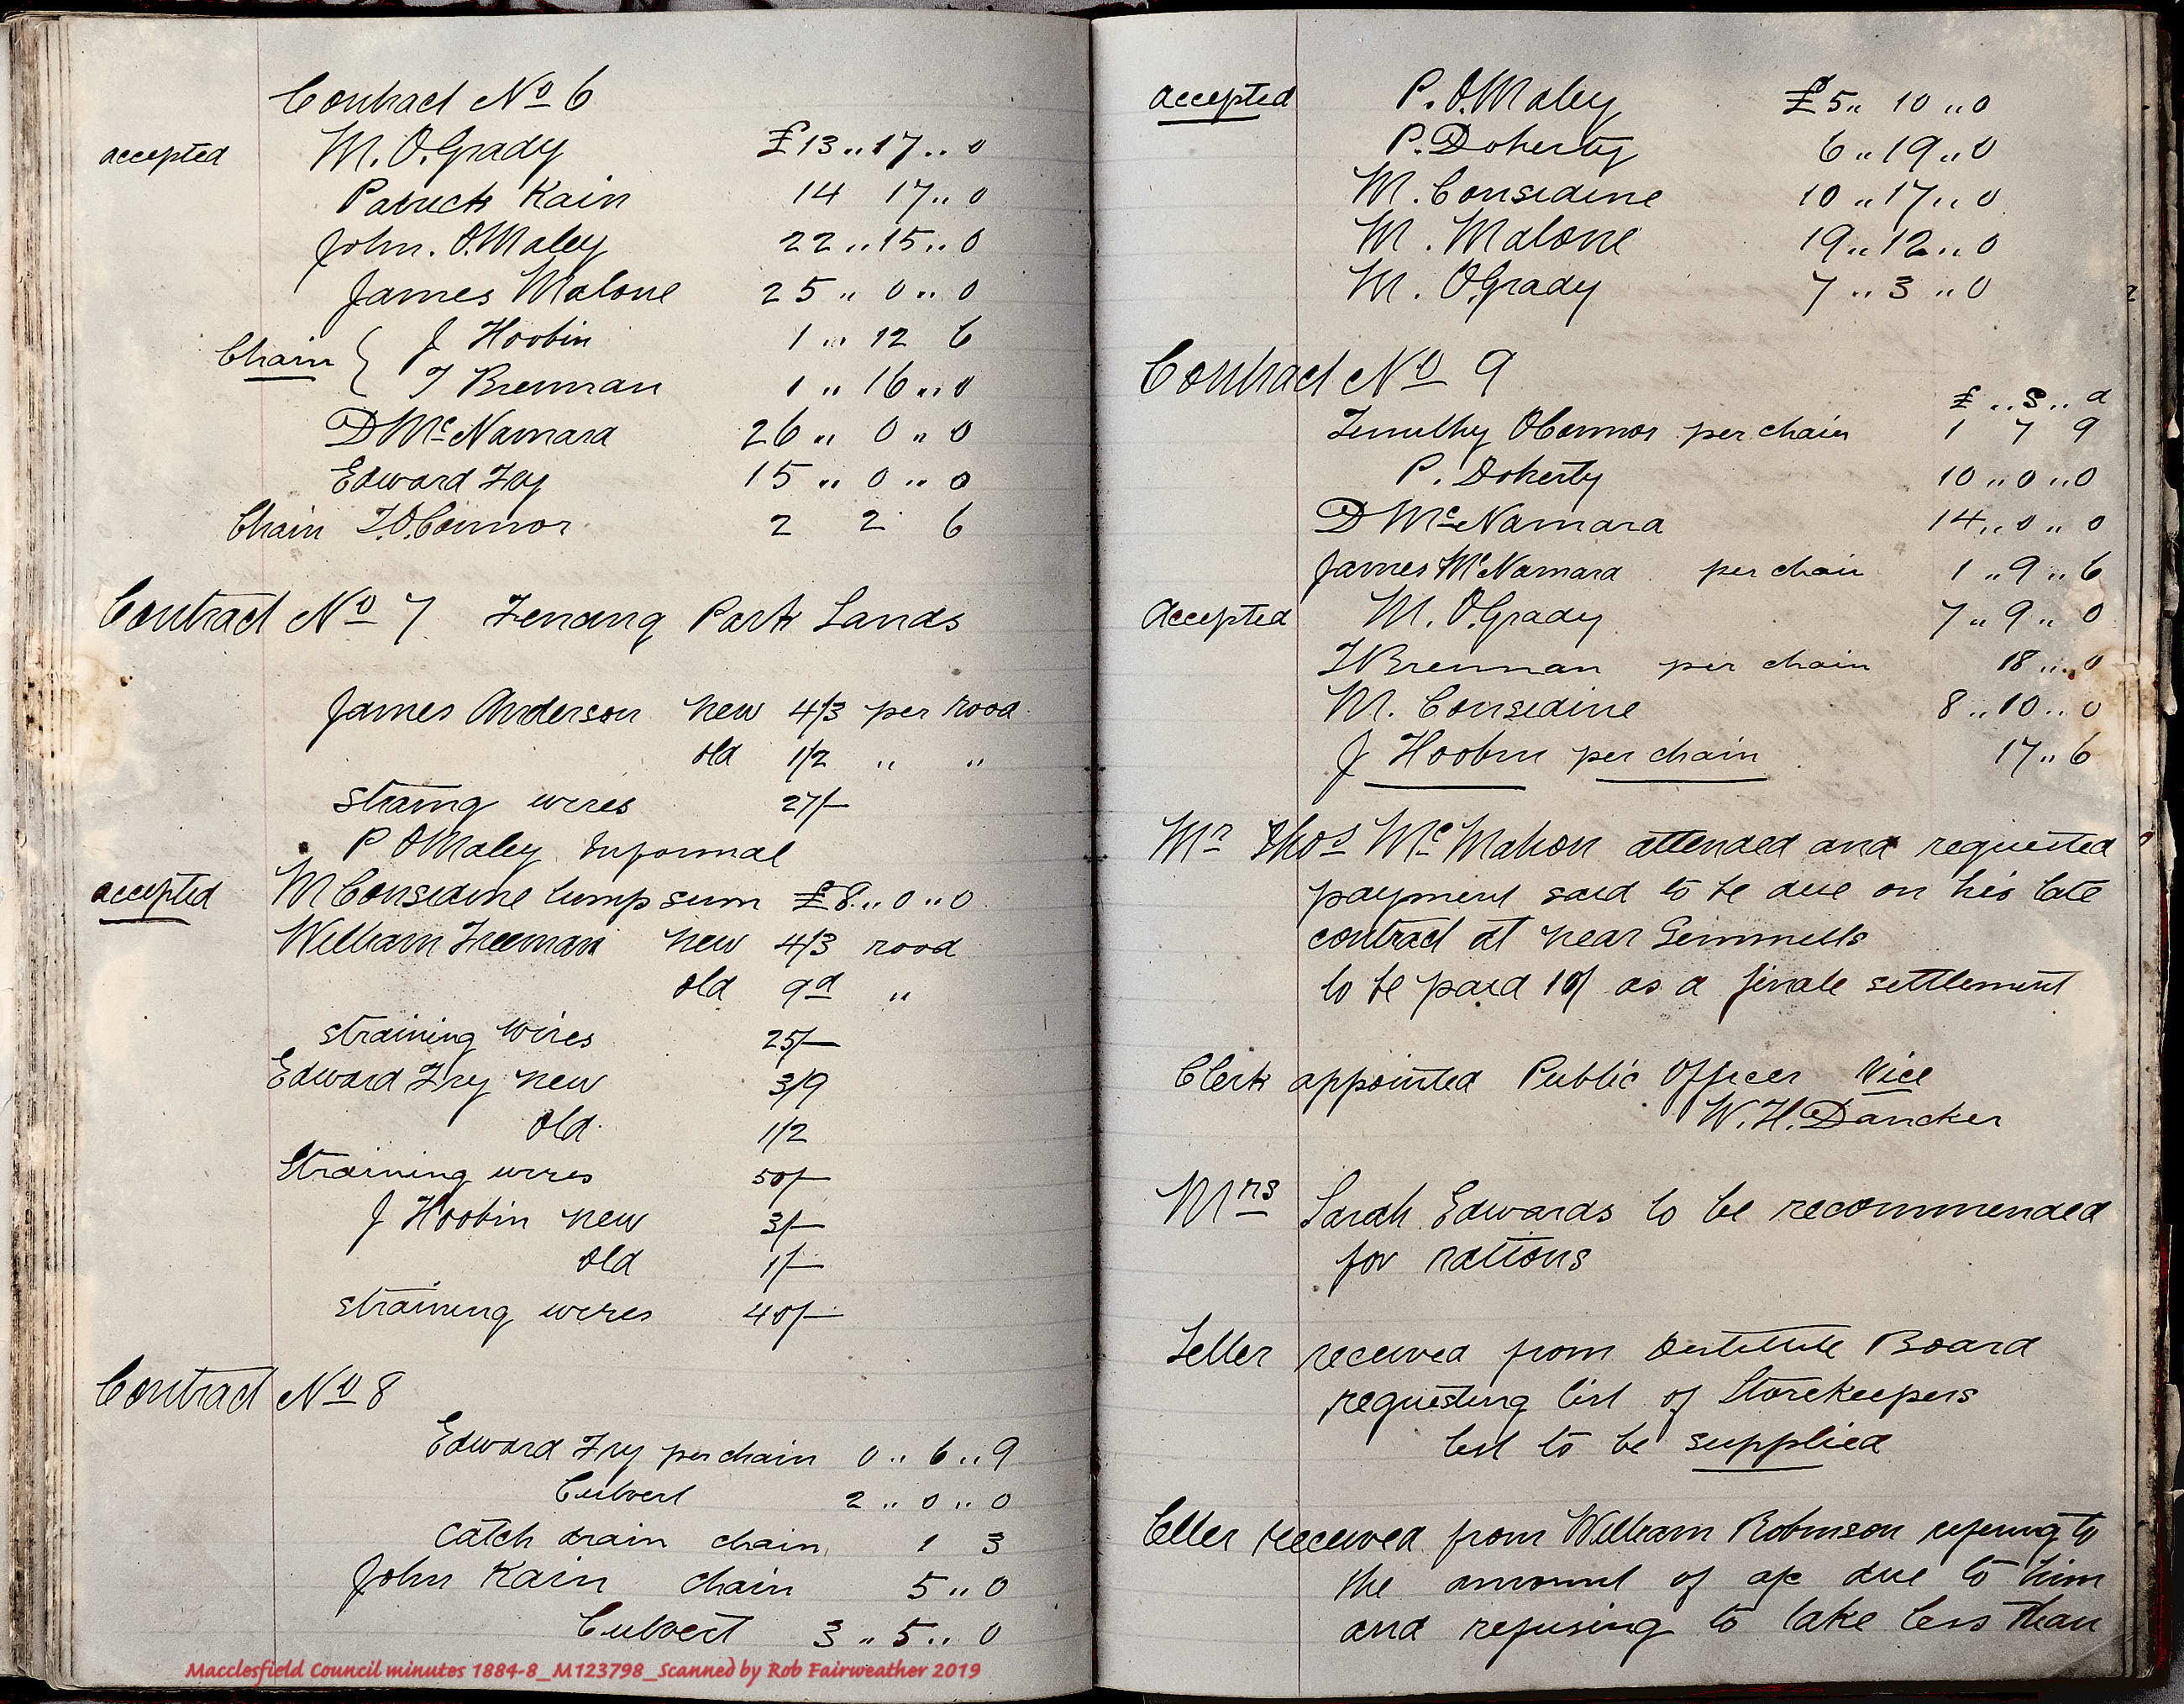 Contract No 6
accepted M. O.Grady £13 .. 17 .. 0
Patrick Kain 14 17 .. 0
John. O.Maley 22 .. 15 .. 0
James Malone 25 .. 0 .. 0
Chain { J Hoobin 1 .. 12 6
T Brennan 1 .. 16 .. 0
D McNamara 26 .. 0 .. 0
Edward Fry 15 .. 0 .. 0
Chain T.O.Connor 2 2 6
Contract No 7 Fencing Park Lands
James Anderson New 4/3 per rood
old 1/2 " "
straing wires 27/-
P OMaley Informal
accepted M Considine lump sum £8 .. 0 .. 0
William Freeman New 4/3 rood
old 9d "
straining wires 25/-
Edward Fry new 3/9
old 1/2
Straining wires 50/-
J Hoobin new 3/-
old 1/-
straining wires 40/-
Contract No 8
Edward Fry per chain 0 .. 6 .. 9
Culvert 2 .. 0 .. 0
Catch drain chain 1 3
John Kain chain 5 .. 0
Culvert 3 .. 5 .. 0
Macclesfield Council minutes 1884-8_M123798_Scanned by Rob Fairweather 2019
accepted P. O.Maley £5 .. 10 .. 0
P. Doherty 6 .. 19 .. 0
M. Considine 10 .. 17 .. 0
M. Malone 19 .. 12 .. 0
M. O.Grady 7 .. 3 .. 0
Contract No 9
£ .. S .. d
Timothy OConnor per chain 1 7 9
P. Doherty 10 .. 0 .. 0
D McNamara 14 .. 0 .. 0
James McNamara per chain 1 .. 9 .. 6
Accepted M. O.Grady 7 .. 9 .. 0
T Brennan per chain 18 .. 0
M. Considine 8 .. 10 .. 0
J Hoobin per chain 17 .. 6
Mr Thos McMahon attended and requested
payment said to be due on his late
contract at near Gemmells
to be paid 10/ as a finale settlement
Clerk appointed Public Officer Vice
W. H. Dancker
Mrs Sarah Edwards to be recommended
for rations
Letter received from Destitute Board
requesting list of Storekeepers
list to be supplied
Letter received from William Robinson refering to
the amount of a/c due to him
and refusing to take less than